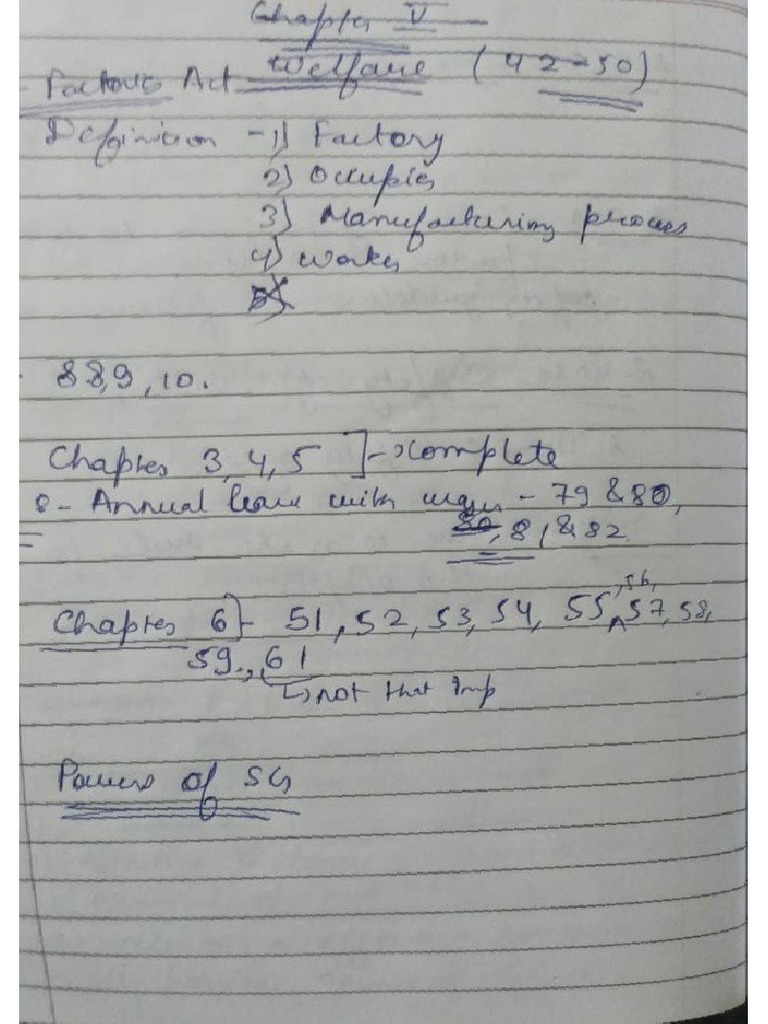 Chapter V
Factories Act Welfare (42-50)
Definition -1) Factory
2) Occupier
3) Manufacturing process
4) Worker
88,9,10.
Chapter 3,4,5 ]-> complete
8- Annual leave with wages - 79 & 80,
80, 81, & 82
Chapter 6}- 51, 52, 53, 54, 55, 56, 57, 58,
59, 61
↳ not that Imp
Powers of SG